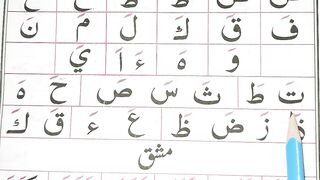 فَ قَ كَ لَ مَ نَ
وَ هَ ءَ اَ يَ
تَ طَ ثَ سَ صَ حَ هَ
زَ ضَ ظَ عَ ءَ قَ كَ
مشق